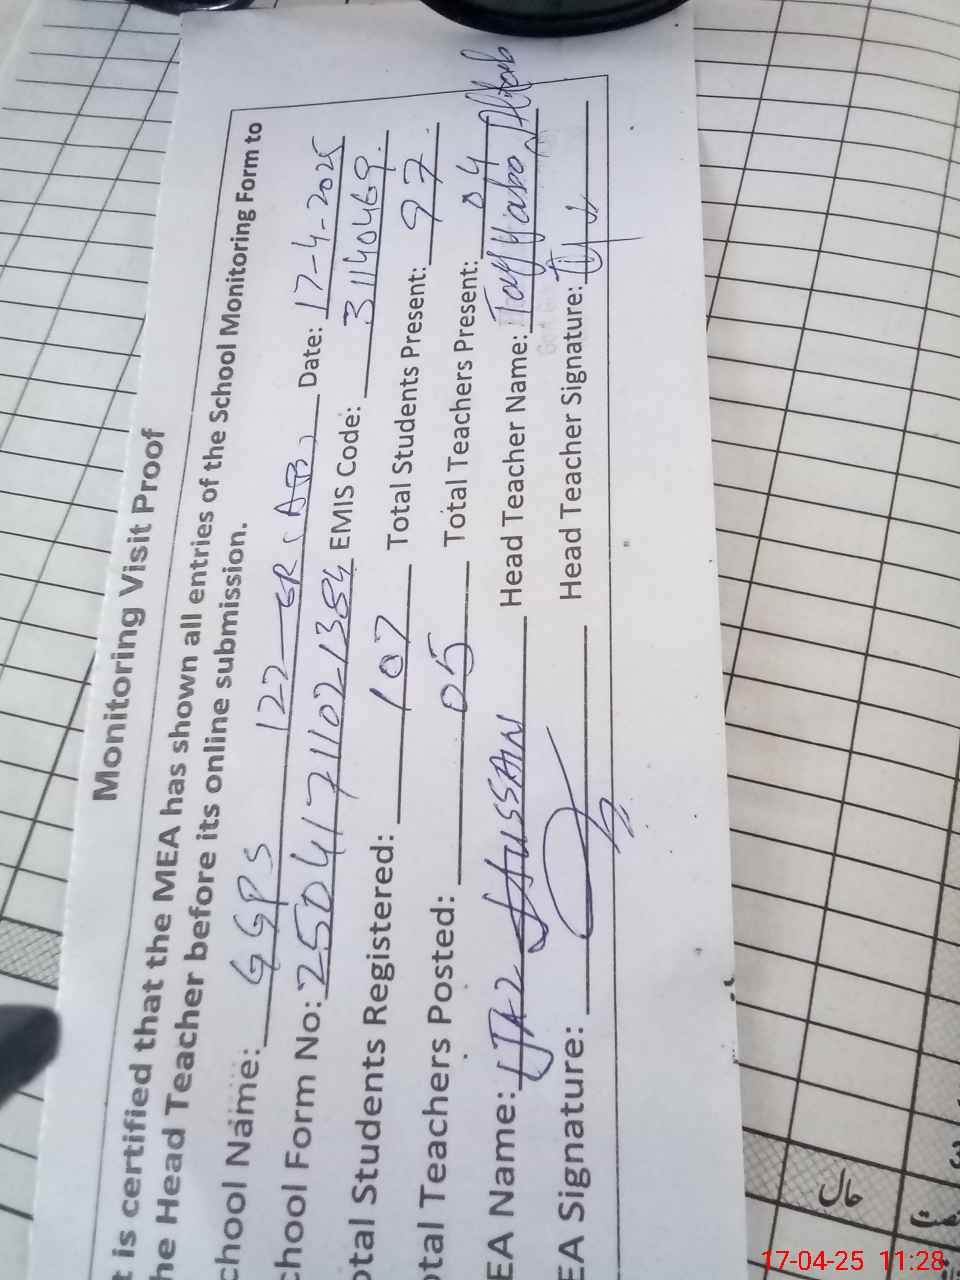 Monitoring Visit Proof
t is certified that the MEA has shown all entries of the School Monitoring Form to
he Head Teacher before its online submission.
chool Name: GGPS 122-GR (AB) Date: 17-4-2025
chool Form No: 25041711021384 EMIS Code: 31140469.
otal Students Registered: 107 Total Students Present: 97
otal Teachers Posted: 05 Total Teachers Present: 04
EA Name: IJAZ HUSSAIN Head Teacher Name: Tayyaba Aftab
EA Signature: Head Teacher Signature:
حال
17-04-25 11:28